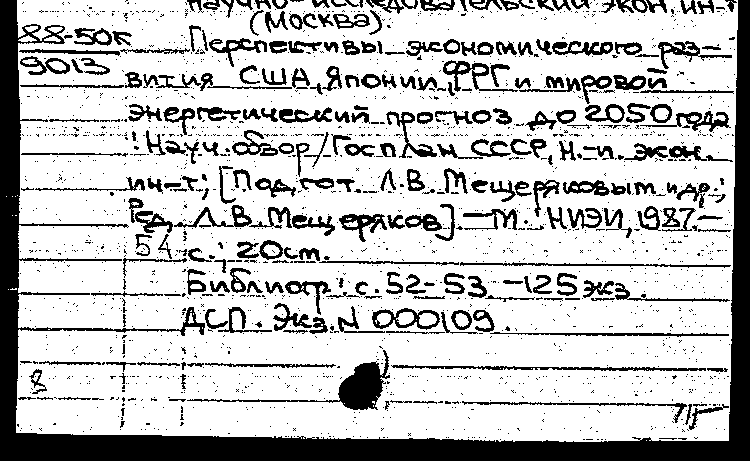 научно-исследовательский экон. ин-т
(Москва).
88-50к
9013
Перспективы экономического раз-
вития США, Японии, ФРГ и мировой
энергетический прогноз до 2050 года
: Науч. обзор / Госплан СССР, Н.-и. экон.
ин-т; [Подгот. Л.В. Мещеряковым и др.;
Ред. Л.В. Мещеряков]. — М. : НИЭИ, 1987. —
54 с.; 20 см.
Библиогр.: с. 52-53. — 125 экз.
ДСП. Экз. N 000109.
8